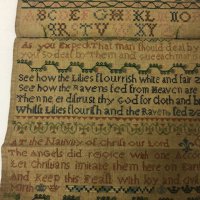 BC E F G H K L
R S T V X Y
As you Expect that man should deal by
you so deal by Them and
See how the Lilies flourish white and fair
See how the Ravens fed from Heaven are
Then ner distrust thy God for Cloth and
Whilst Lilies flourish and the Ravens fed
At the Nativity of Christ our Lord
The Angels did rejoice with one
Let Christians imitate them here on
And keep this Feast with joy and